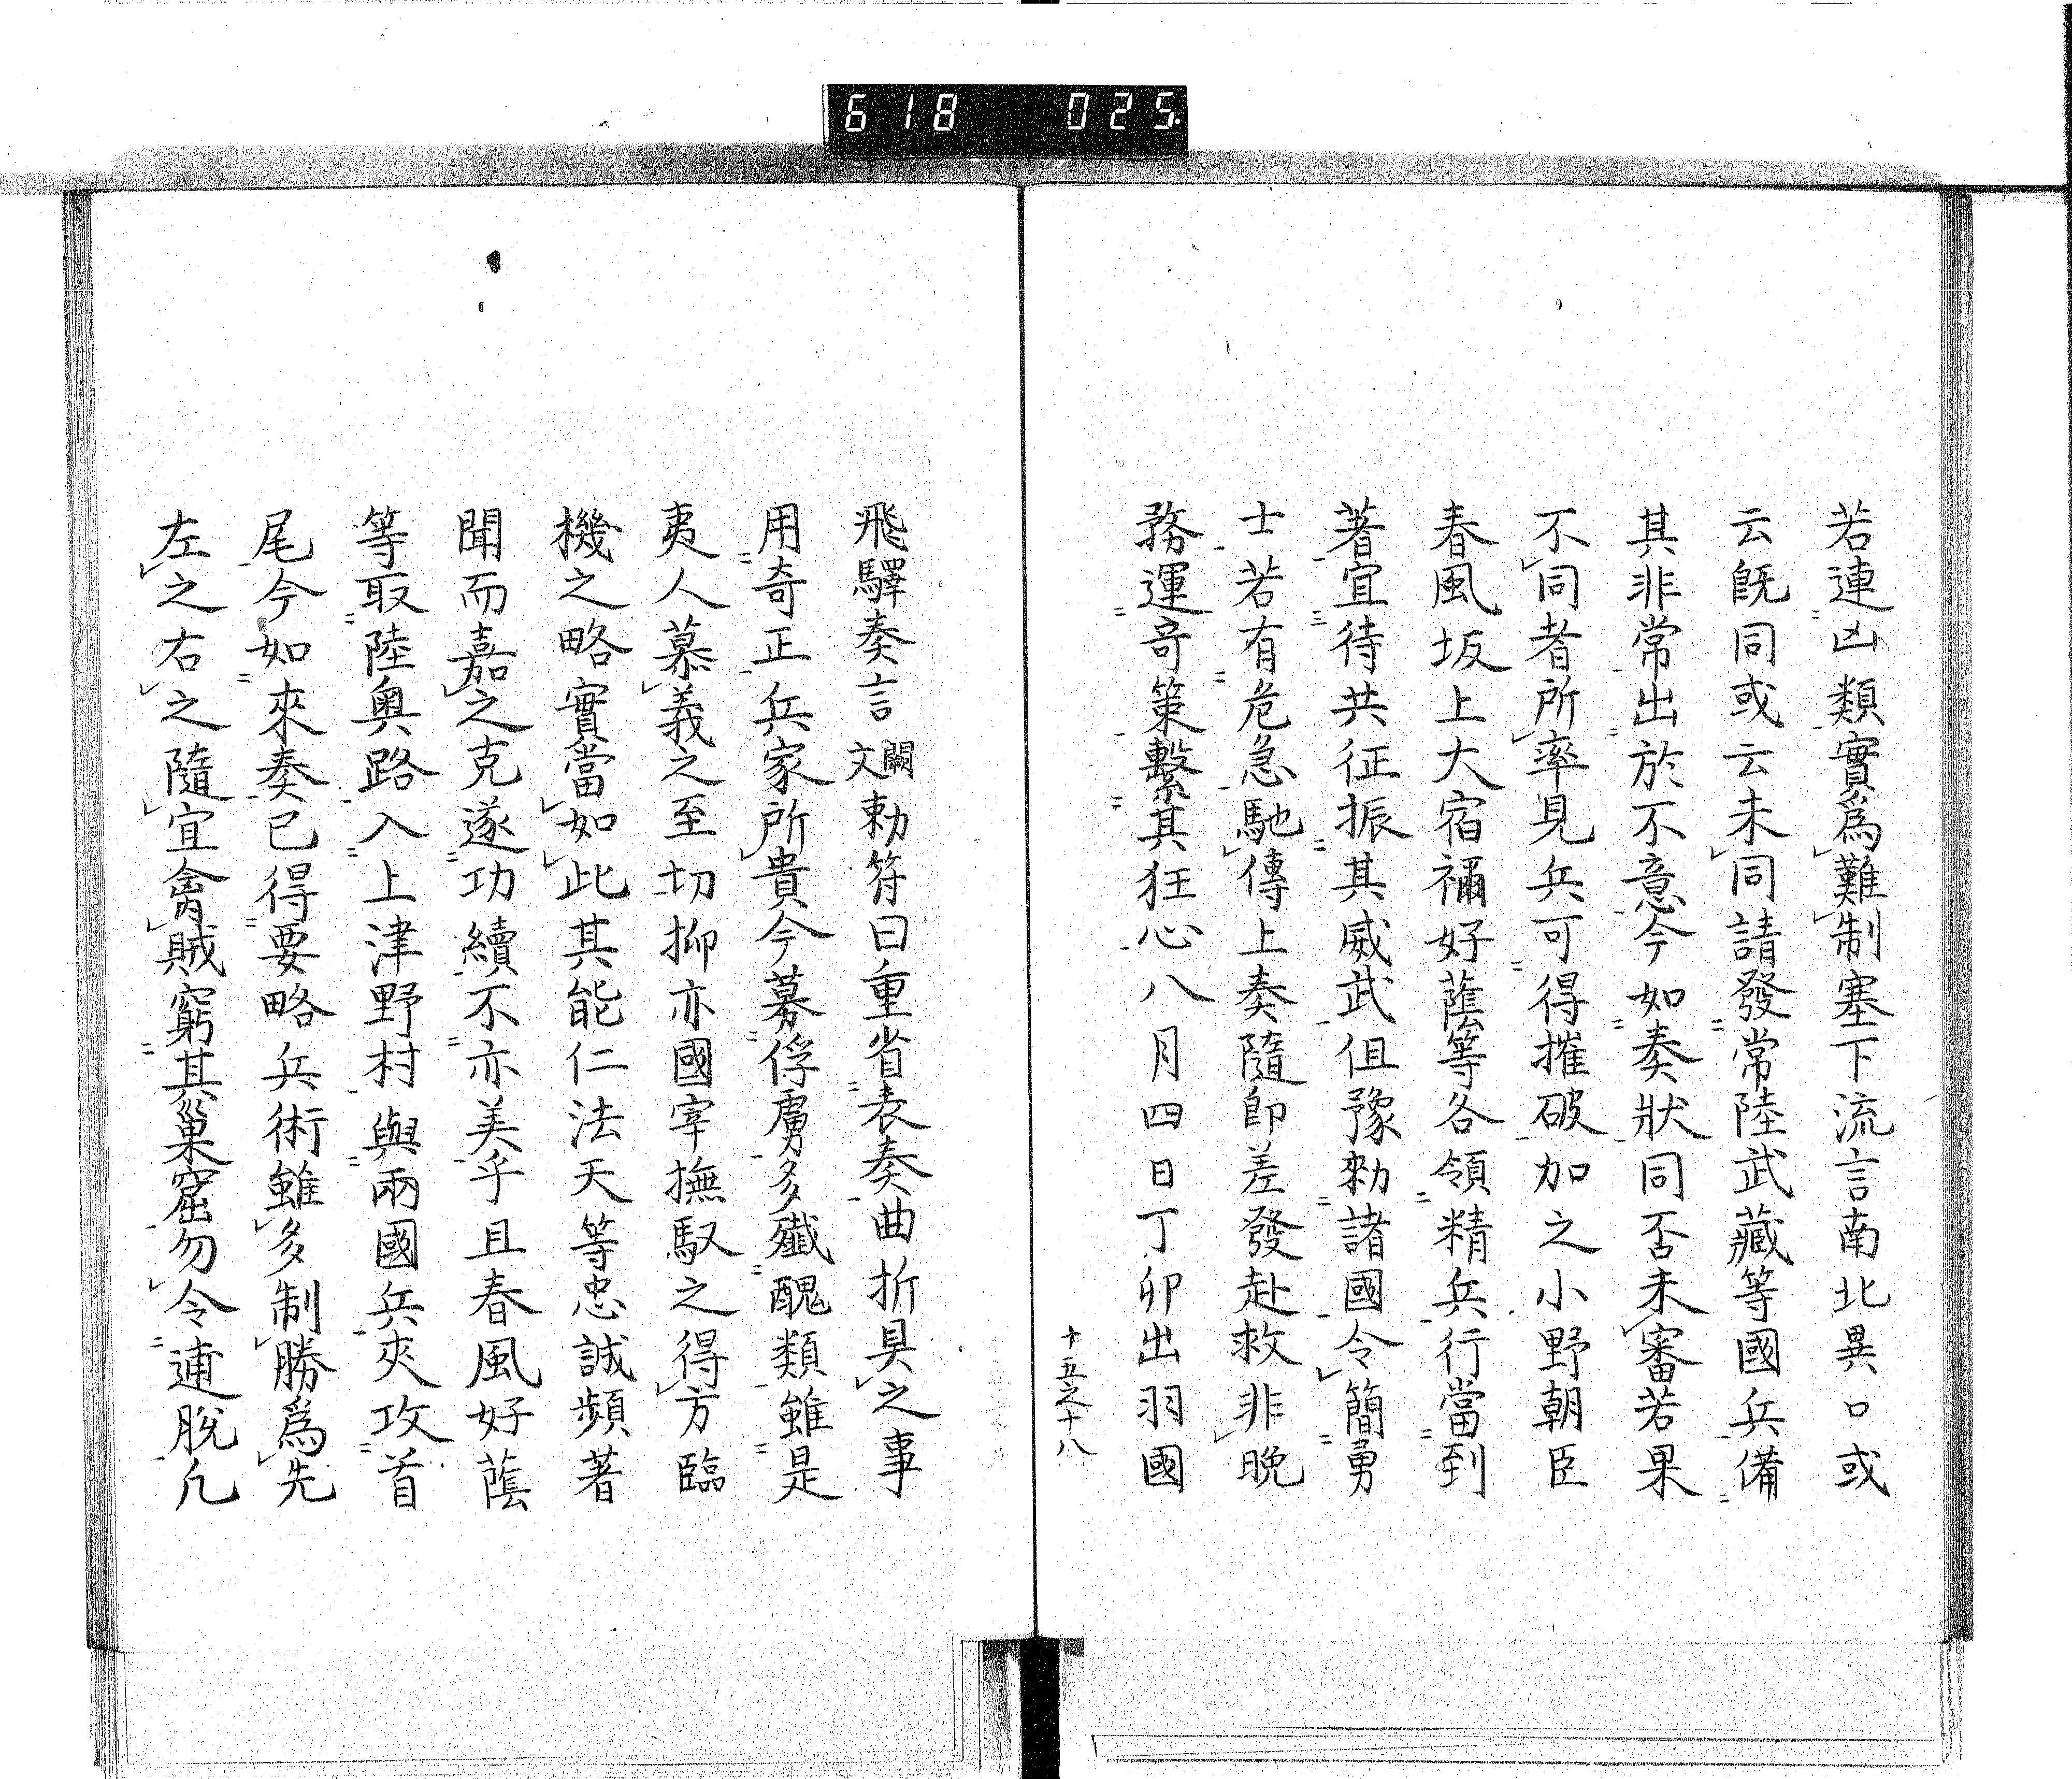 618 025
若連凶類實爲難制塞下流言南北異口或
云既同或云未同請發常陸武藏等國兵備
其非常出於不意今如奏狀同否未審若果
不同者所率見兵可得摧破加之小野朝臣
春風坂上大宿禰好蔭等各領精兵行當到
著宜待共征振其威武但豫勑諸國令簡勇
士若有危急馳傳上奏隨即差發赴救非晩
務運奇策繫其狂心八月四日丁卯出羽國
十五之十八
飛驛奏言闕文勅符曰重省表奏曲折具之事
用奇正兵家所貴今募俘虜多殲醜類雖是
夷人慕義之至切抑亦國宰撫馭之得方臨
機之略實當如此其能仁法天等忠誠頻著
聞而嘉之克遂功續不亦美乎且春風好蔭
等取陸奧路入上津野村與兩國兵夾攻首
尾今如來奏已得要略兵術雖多制勝爲先
左之右之隨宜禽賊窮其巢窟勿令逋脫凡